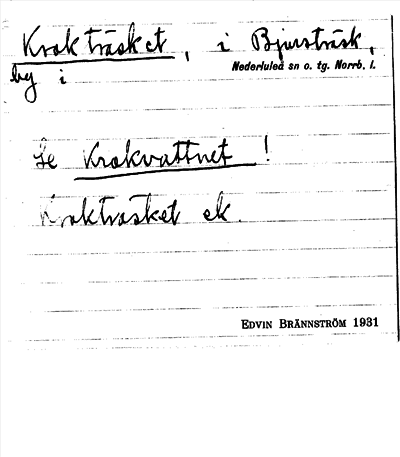 Krokträsket, i Bjursträsk,
by i Nederluleå sn o. tg. Norrb. l.
Se Krokvattnet !
Krokträsket ek.
EDVIN BRÄNNSTRÖM 1931